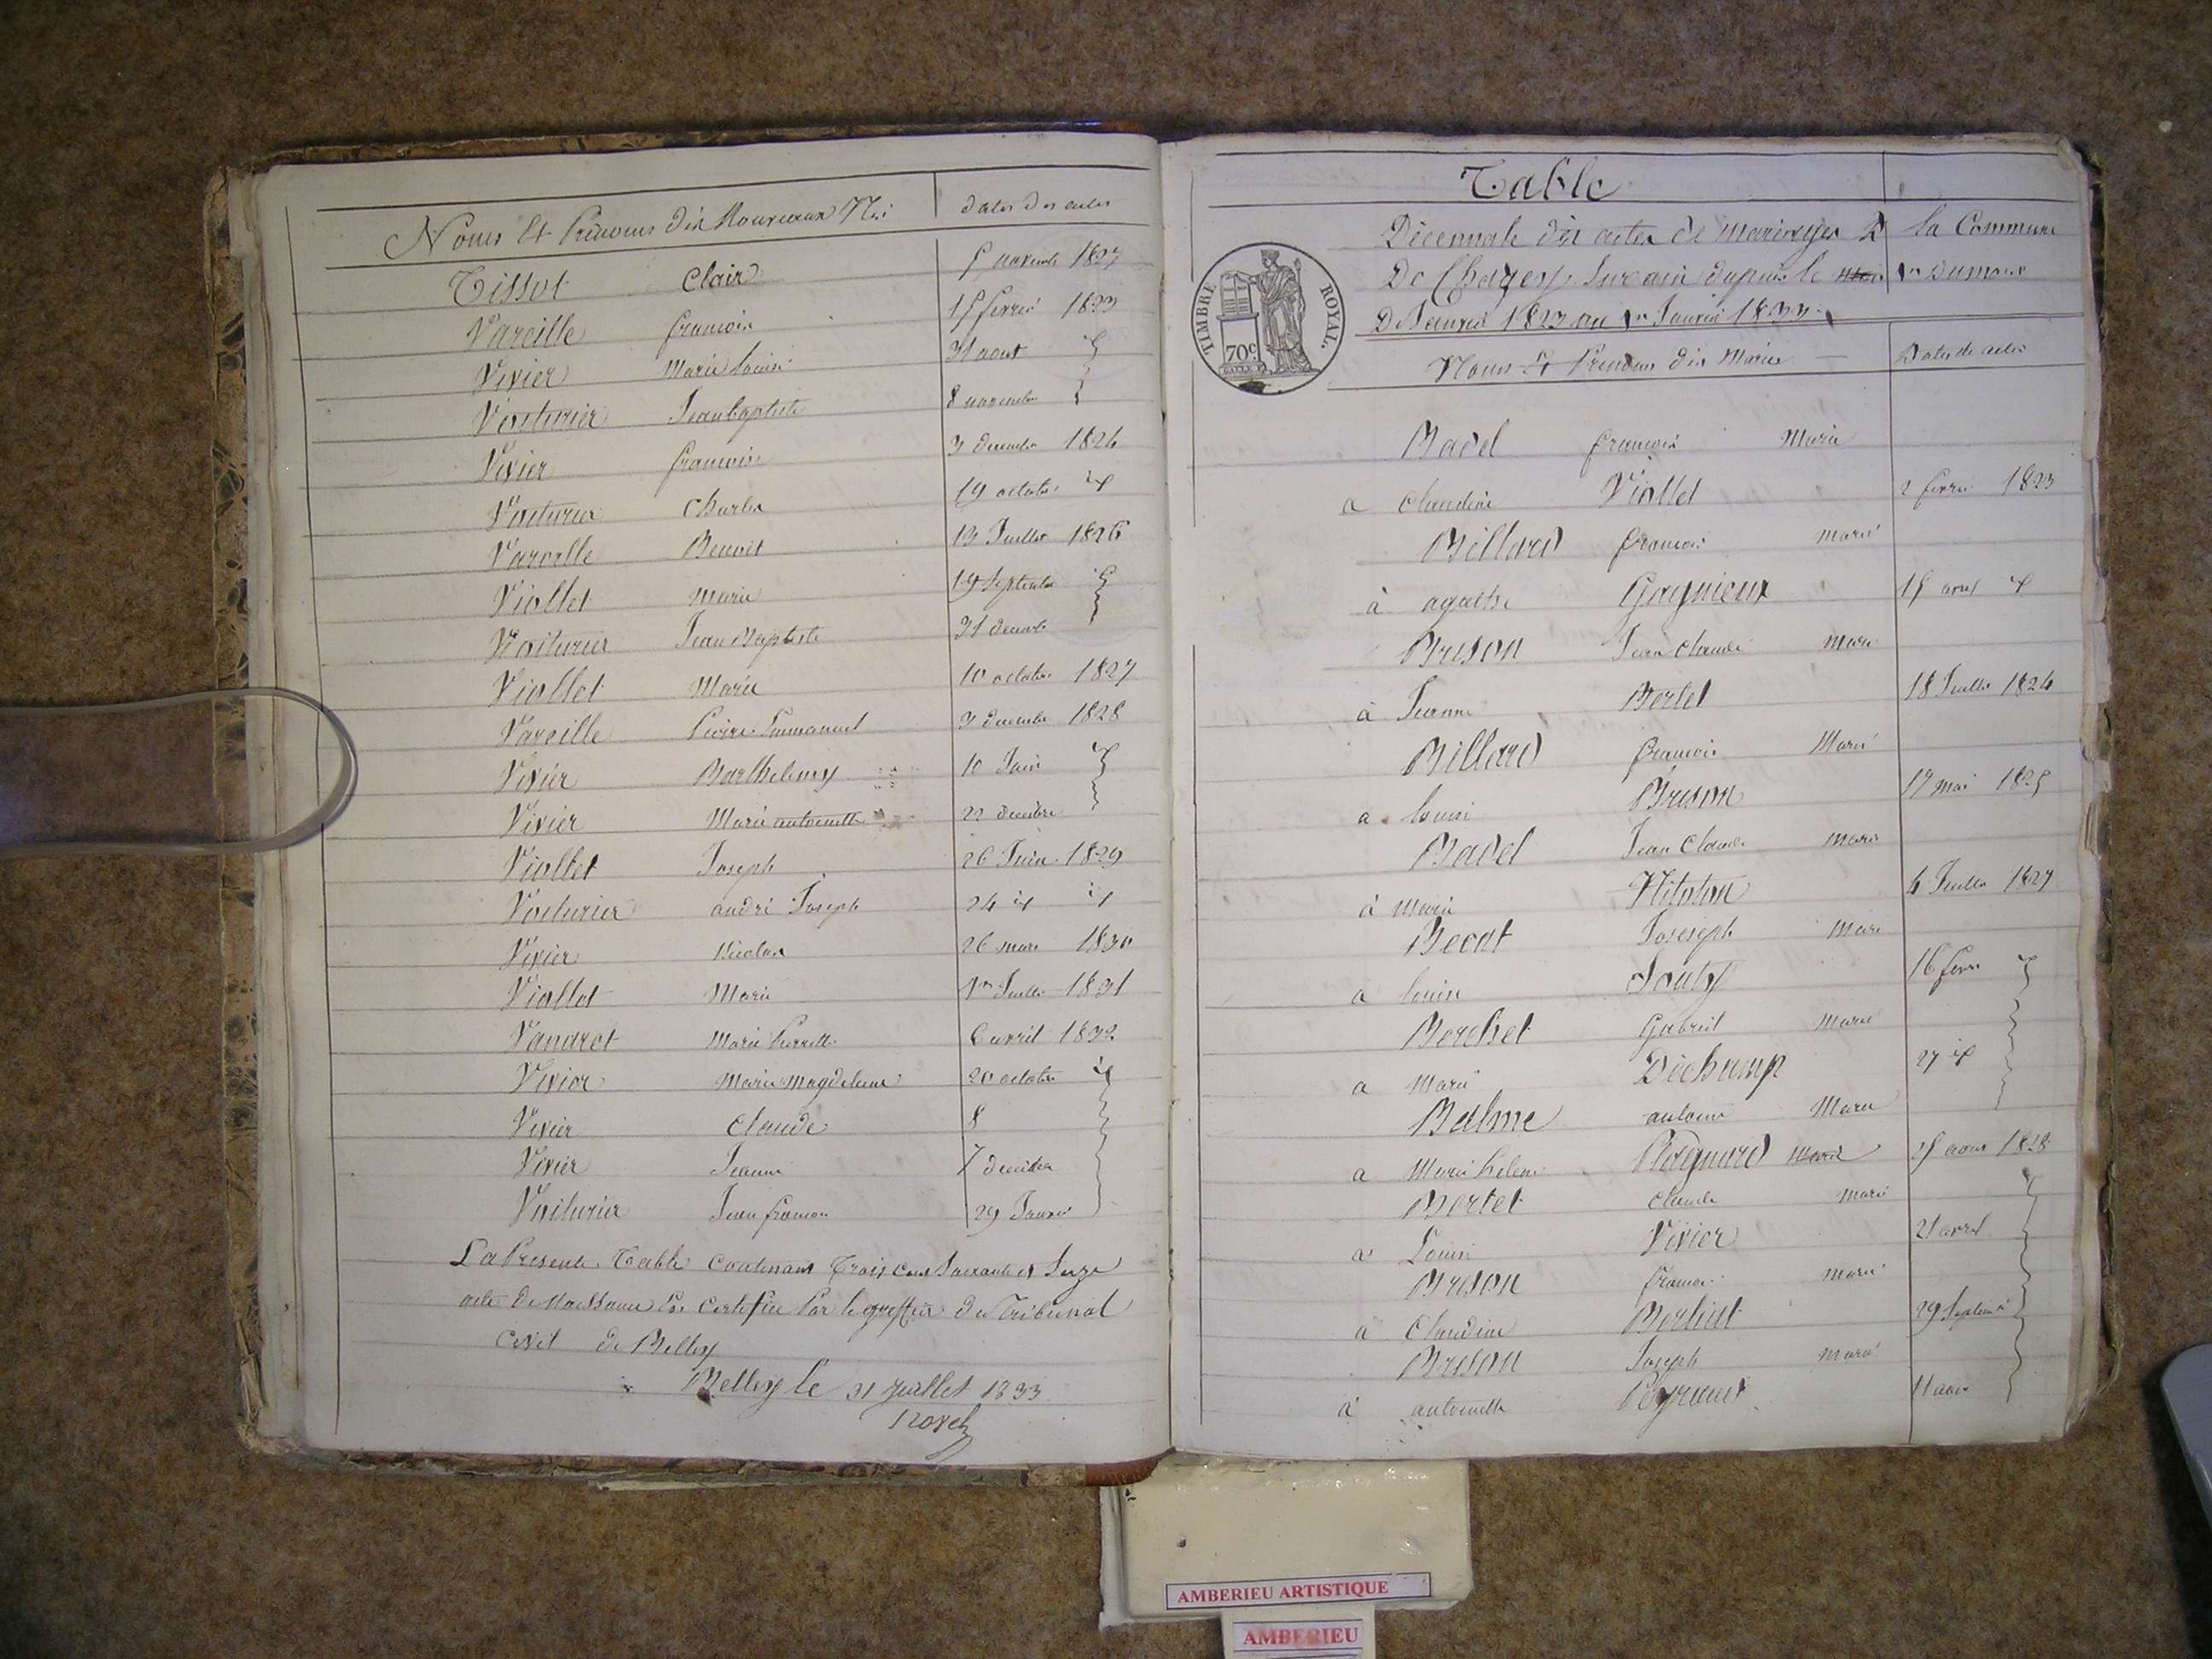 Noms Et Prénoms des Nouveaux Nés dates des actes
Tissot Clair 5 novembre 1827
Vareille françois 15 février 1823
Vivier Marie Louise 31 aout id
Voiturier Jean baptiste 8 novembre
Vivier françoise 3 decembre 1824
Voiturier Charles 19 octobre id
Vareille Benoit 13 Juillet 1826
Viallet Marie 19 Septembre id
Voiturier Jean Baptiste 31 decembre
Viallet Marie 10 octobre 1827
Vareille Pierre Emmanuel 3 decembre 1828
Vivier Barthelemy 10 Juin id
Vivier Marie antoinette 22 decembre
Viallet Joseph 26 Juin 1829
Voiturier andré Joseph 24 id id
Vivier Nicolas 26 mars 1830
Viallet Marie 1er Juillet 1831
Vandret Marie Pierrette 6 avril 1832
Vivier Marie Magdeleine 20 octobre id
Vivier Claude 8
Vivier Jeanne 7 decembre
Voiturier Jean françois 29 Janvier
La Presente Table Contenant Trois Cent Soixante et Seize
acte de Naissance Est Certifiée Par le greffier du Tribunal
Civil de Belley
Belley le 31 Juillet 1833
Table
Décennale des actes de mariages de la Commune
De Chazey Sur ain depuis le 1er Du mois
De Janvier 1823 au 1er Janvier 1833
TIMBRE ROYAL
70c
Noms Et Prenoms des Mariés Dates des actes
Badel françois Marié
a Claudine Viallet 2 fevrier 1823
Billard françois marié
à agathe Gagnieux 15 avril id
Brison Jean Claude marié
à Jeanne Bertet 18 Juillet 1824
Billard françois Marié
a louise Brison 17 mai 1825
Badel Jean Claude marié
à marie 4 Juillet 1827
Becat Joseph marié
a louise Souty 16 fevrier id
Berchet Gabriel marié
a Marie Dechamp 27 id
Balme antoine Marié
a Marie helene Ragnard marié 25 aout 1828
Bertet Claude marié
a Louise Vivier 21 avril
Brison françois marié
a Claudine 29 Septembre
Brison Joseph marié
à antoinette Peyraud 11
AMBERIEU ARTISTIQUE
AMBERIEU